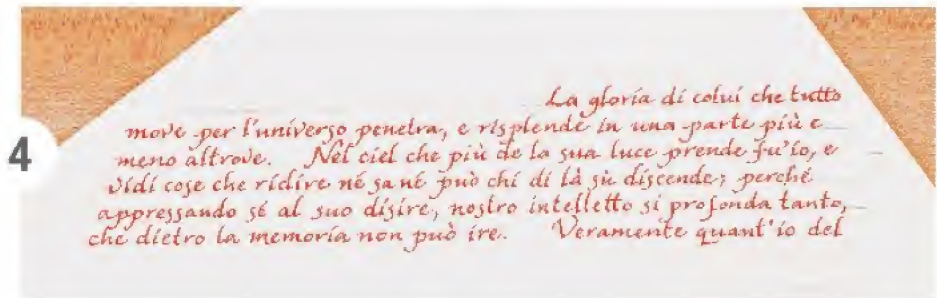 La gloria di colui che tutto
move per l'universo penetra, e risplende in una parte più e
meno altrove. Nel ciel che più de la sua luce prende fu'io, e
vidi cose che ridire né sa né può chi di là sù discende; perché
appressando sé al suo disire, nostro intelletto si profonda tanto,
che dietro la memoria non può ire. Veramente quant'io del
4